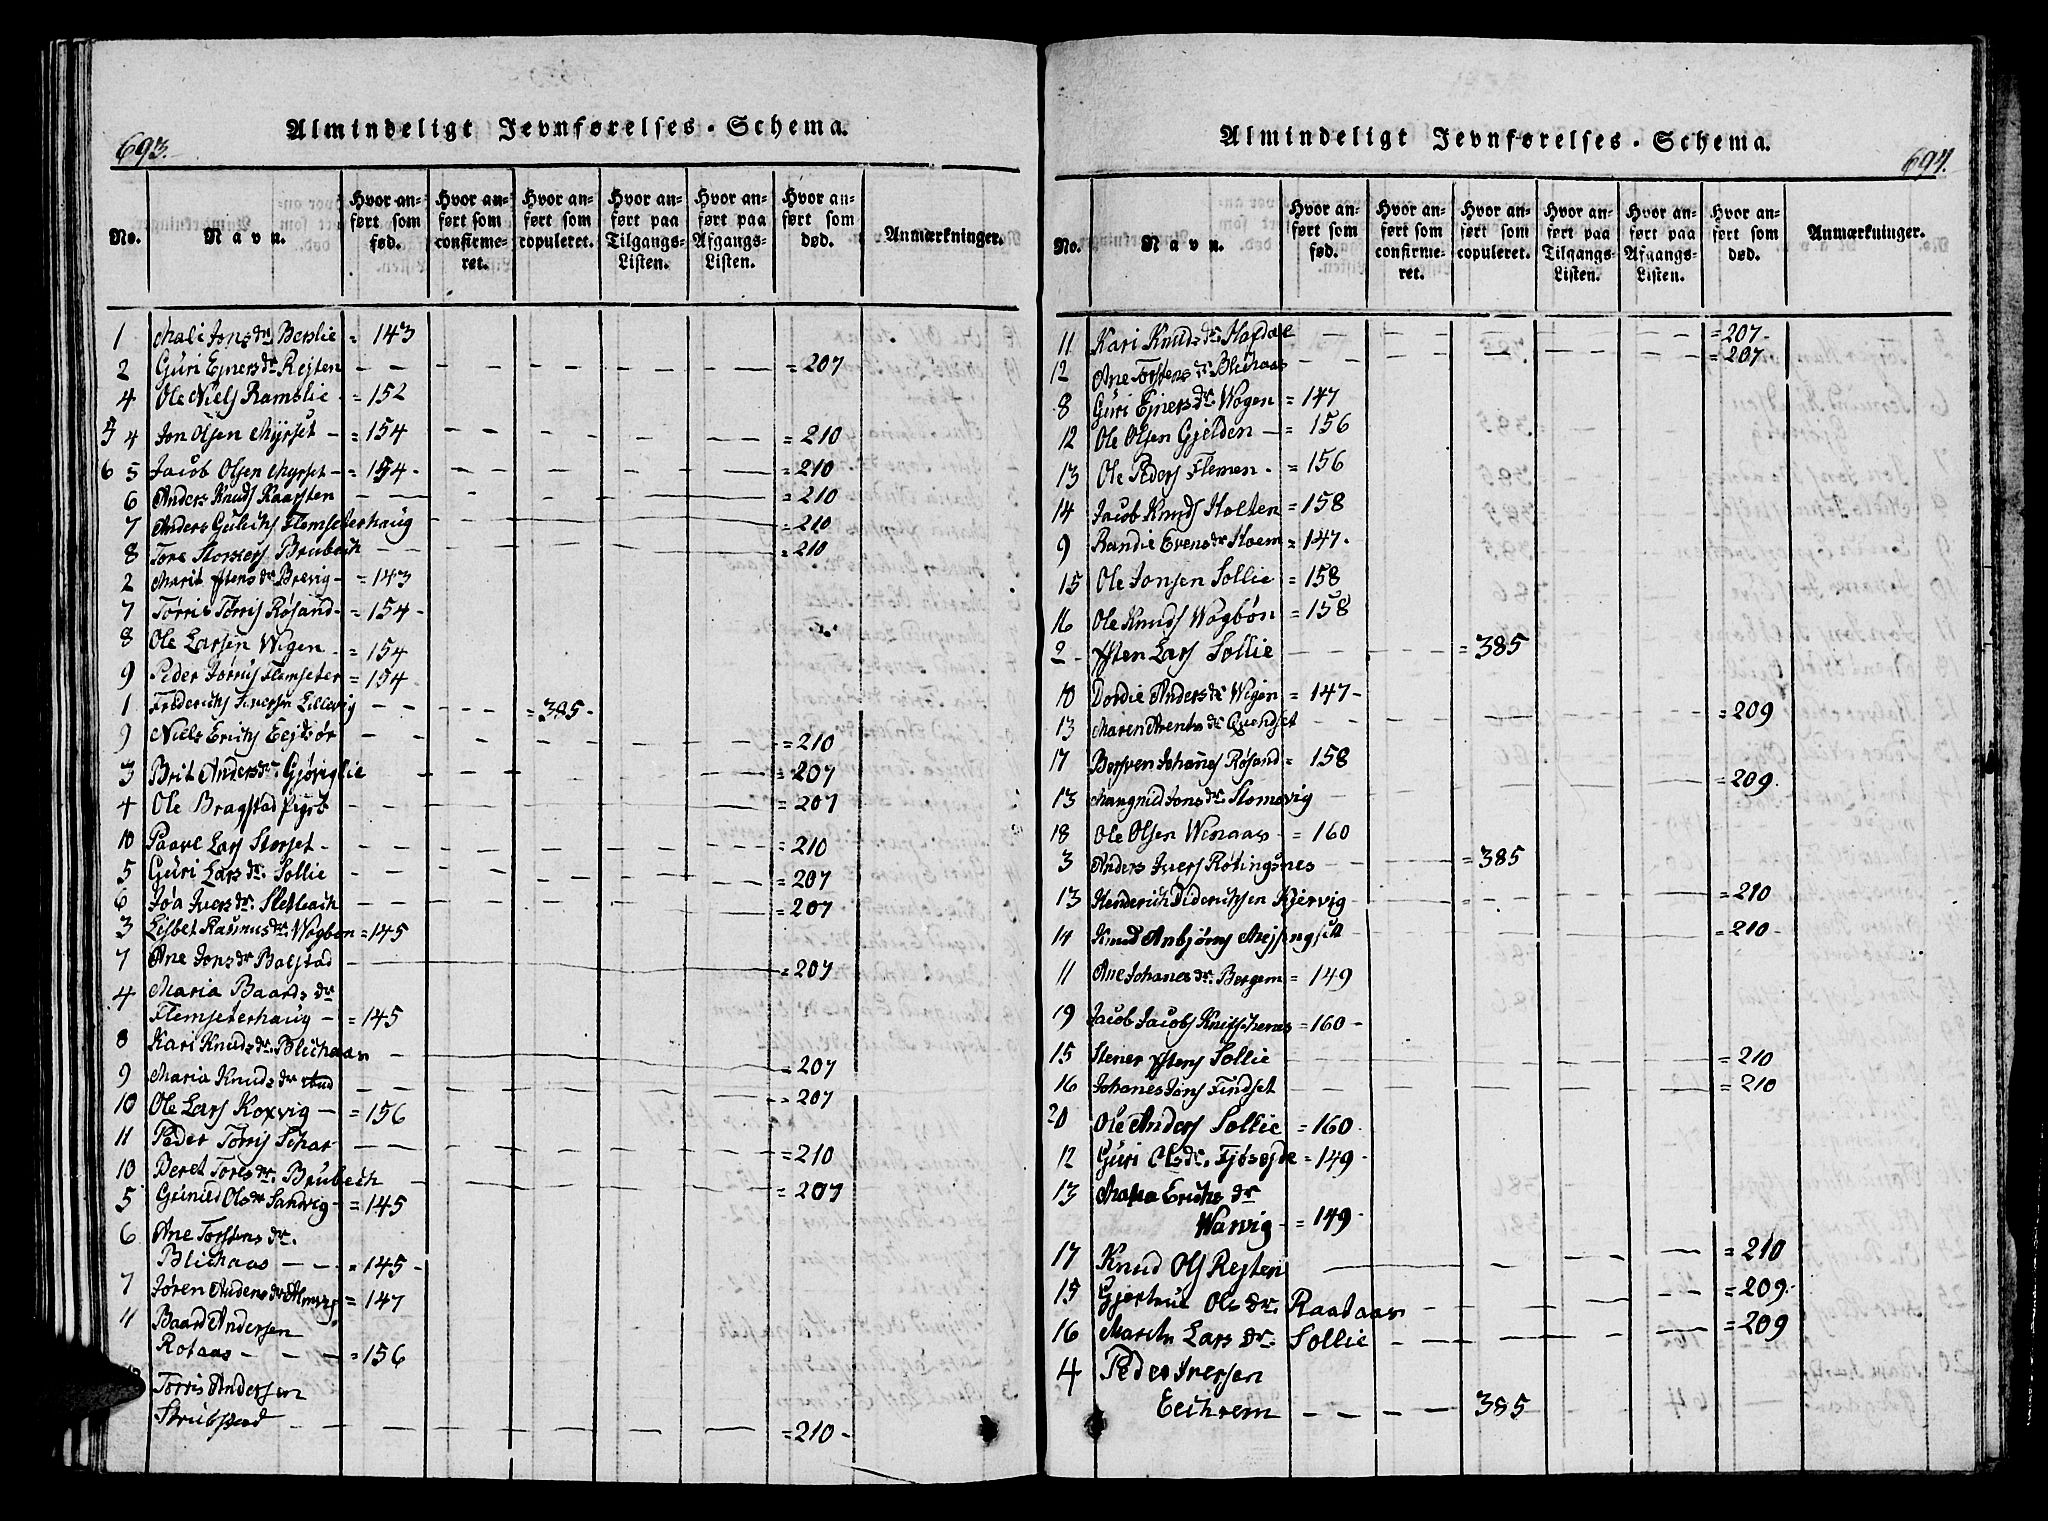 Almindeligt Jevnførelses-Schema.
693.
No. Navn. Hvor anført som fød. Hvor anført som confirmeret. Hvor anført som copuleret. Hvor anført paa Tilgangs-Listen. Hvor anført paa Afgangs-Listen. Hvor anført som død. Anmærkninger.
1 Mali Jonsdr Berslie = 143
2 Guri Ejnersdr Rejten - - - - - = 207
4 Ole Niels Ramslie = 152
5 4 Jon Olsen Myrset - = 154 - - - - = 210
6 5 Jacob Olsen Myrset - = 154 - - - - - = 210
6 Anders Knuds Kaarsten - - - - - = 210
7 Anders Gulichs Flemseterhaug - - - - = 210
8 Tore Brubech - - - - - = 210
2 Marit Istensdr Brevig - = 143
7 Torris Torris Røsand - = 154 -
8 Ole Larsen Wigen - = 154
9 Peder Flemseter = 154
1 Frederichs Iversen Lillevig - - - = 385 -
9 Niels Erichs - - - - - = 210
3 Brit Andersdr. Gjøviglie - - - - - = 207
4 Ole Bragstad - - - - - = 207
10 Paavel Lars Storset - - - - - = 210
5 Guri Larsdr. Sollie - - - - - = 207
6 Jøa Iversdr. - - - - - = 207
3 Lisbet Rasmusdr. Wogbøn = 145
7 Ane Jonsdr Bolstad - - - - - = 207
4 Maria Baardsdr
Flemseterhaug - = 145
8 Kari Knudsdr. Blichaas - - - - - = 207
9 Maria Knudsdr - - - - - = 207
10 Ole Lars Koxvig - = 156
11 Peder Torris Schar - - - - - = 210
10 Beret Toresdr. Brubech - - - - - = 207
5 Gunild Olsdr Sandvig - = 145
6 Ane Torstensdr.
Blichaas - - - = 145 -
7 Jøren Andersdr Almvig = 147
11 Baard Andersen
Rotaas - - - = 156
Torris Andersen
- - - - - = 210 -
Almindeligt Jevnførelses-Schema.
694.
No. Navn. Hvor anført som fød. Hvor anført som confirmeret. Hvor anført som copuleret. Hvor anført paa Tilgangs-Listen. Hvor anført paa Afgangs-Listen. Hvor anført som død. Anmærkninger.
11 Kari Knudsdr. Hafdal - - - - - = 207 -
12 Ane Torstensdr Blichaas - - - - - = 207
8 Guri Ejnersdr. Wogen = 147
12 Ole Olsen Gjelden - = 156
13 Ole Peders Flemen - = 156
14 Jacob Knuds Holten = 158
9 Randie Evensdr Hoem = 147 -
15 Ole Jonsen Sollie = 158
16 Ole Knuds Wogbøn = 158
2 - Isten Lars Sollie - - - = 385
10 Dordie Andersdr Wigen = 147 -
13 Maren Arentsdr Qvendset - - - - - = 209
17 Bersven Johanes Røsand = 158
13 Mangnild Jonsdr. Stomsvig - - - - - = 209 -
18 Ole Olsen Wenaas - = 160
3 Anders Ivers Røtingsnes - - - = 385
13 Henderich Diderichsen Kjervig - - - - - = 210
14 Knud Anbjørns - - - - - = 210 -
11 Ane Johanesdr. Bergem = 149
19 Jacob Jacobs = 160 -
15 Stener Istens Sollie - - - - - = 210
16 Johanes Jons Findset - - - - - = 210
20 Ole Anders Sollie = 160 -
12 Guri Olsdr. Fjøsejde = 149 -
13 Erichsdr
Warvig - = 149 -
17 Knud Ols Rejten - - - - - = 210
15 Gjertrud Olsdr. Raataas - - - - - = 209 -
16 Marith Larsdr. Sollie - - - - - = 209
4 Peder Iversen
Eechrem - - - 385